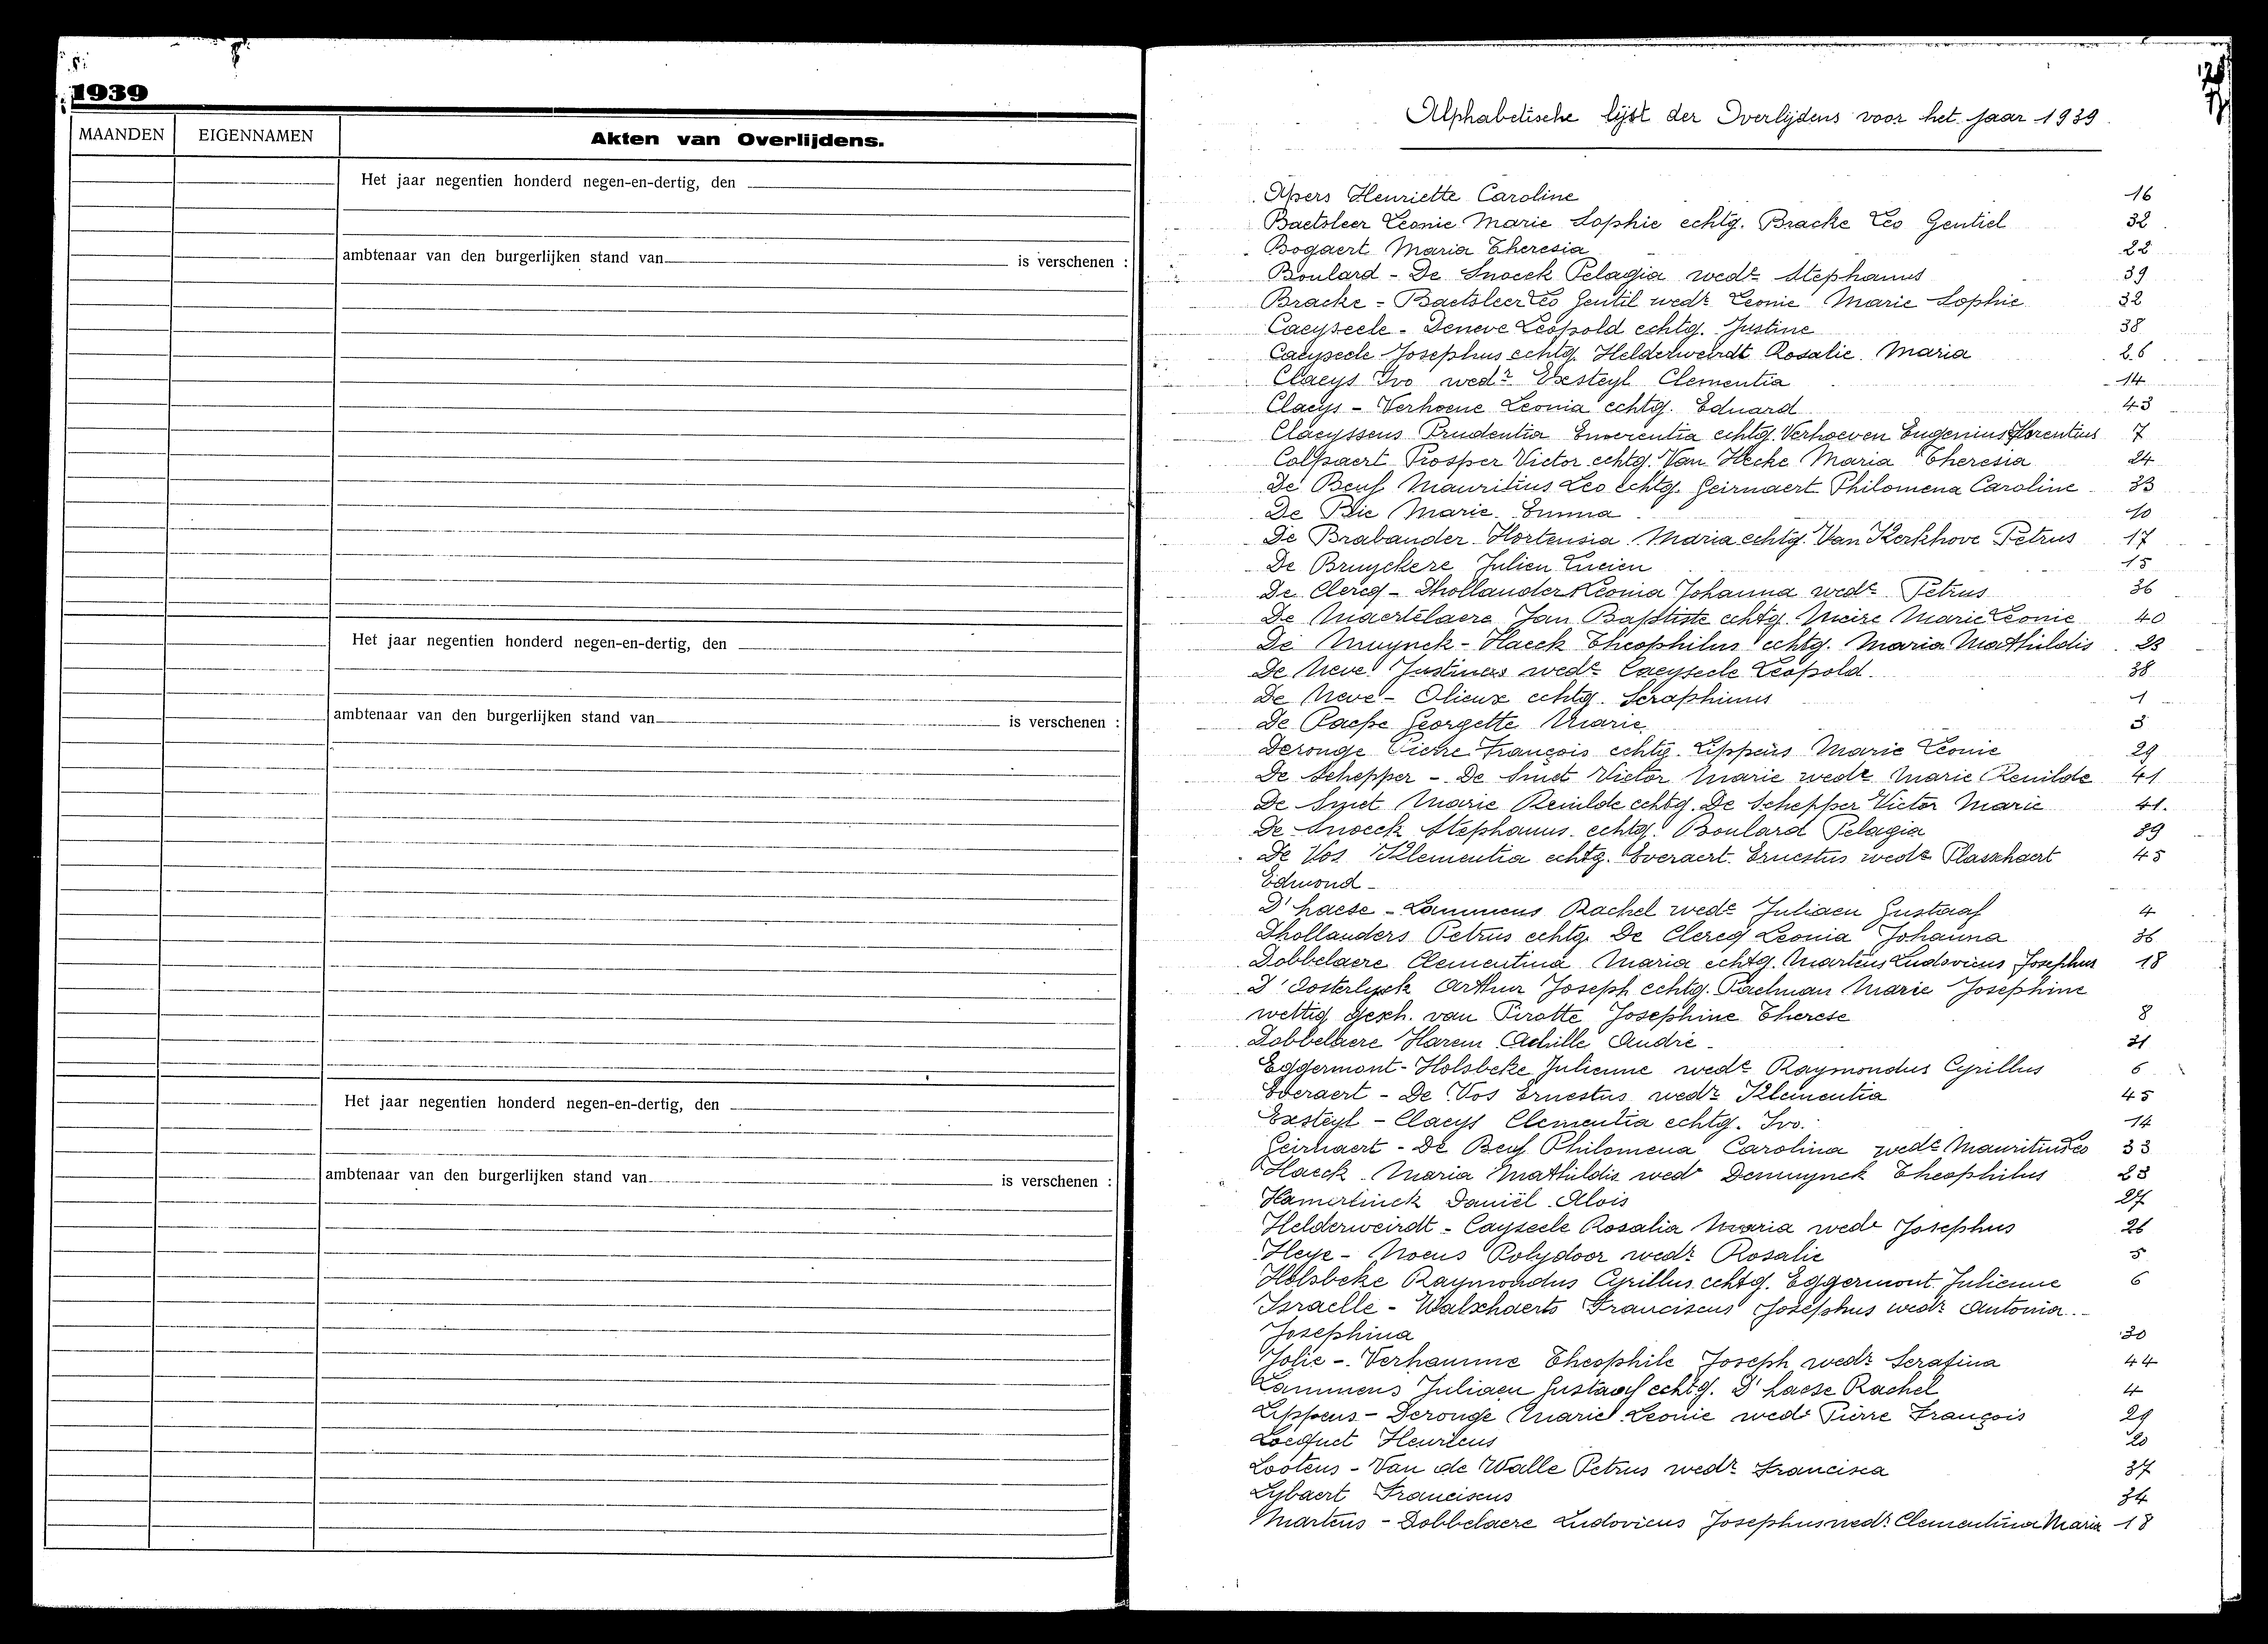 1939
MAANDEN EIGENNAMEN Akten van Overlijdens.
Het jaar negentien honderd negen-en-dertig, den
ambtenaar van den burgerlijken stand van is verschenen :
Het jaar negentien honderd negen-en-dertig, den
ambtenaar van den burgerlijken stand van is verschenen :
Het jaar negentien honderd negen-en-dertig, den
ambtenaar van den burgerlijken stand van is verschenen :
Alphabetische lijst der Overlijdens voor het jaar 1939.
Apers Henriette Caroline 16
Baetsleer Leonie Marie Sophie echtg. Bracke Leo Gentiel 32
Bogaert Maria Theresia 22
Boulard - De Snoeck Pelagia wede Stephanus 39
Bracke - Baetsleer Leo Gentil wedr Leonie Marie Sophie 32
Caeyseele - Deneve Leopold echtg. Justine 38
Caeyseele Josephus echtg. Helderweirdt Rosalie Maria 26
Claeys Ivo wedr Exesteyl Clementia 14
Claeys - Verhoene Leonia echtg. Eduard 43
Claeyssens Prudentia Enverentia echtg. Verhoeven Eugenius Florentius 7
Colpaert Prosper Victor echtg. Van Hecke Maria Theresia 24
De Beuf Mauritius Leo echtg. Geirnaert Philomena Caroline 33
De Bie Marie Emma 10
De Brabander Hortensia Maria echtg. Van Kerkhove Petrus 17
De Bruyckere Julien Lucien 15
De Clercq - Dhollander Leonia Johanna wede Petrus 36
De Maertelaere Jan Baptiste echtg. Meire Marie Leonie 40
De Muynck - Haeck Theophilus echtg. Maria Mathildis 23
De Neve Justine wede Caeyseele Leopold. 38
De Neve - Olieux echtg. Seraphinus 1
De Paepe Georgette Marie 3
Deronge Pierre François echtg. Lippens Marie Leonie 29
De Schepper - De Smet Victor Marie wedr Marie Renilde 41
De Smet Marie Renilde echtg. De Schepper Victor Marie 41.
De Snoeck Stephanus echtg. Boulard Pelagia 39
De Vos Klementia echtg. Everaert Ernestus wede Plasschaert 45
Edmond
D'haese - Lammens Rachel wede Juliaen Gustaaf 4
Dhollanders Petrus echtg. De Clercq Leonia Johanna 36
Dobbelaere Clementina Maria echtg. Martens Ludovicus Josephus 18
D'Oosterlynck Arthur Joseph echtg. Paelman Marie Josephine
wettig gesch. van Pirotte Josephine Therese 8
Dobbelaere Harem Achille André 21
Eggermont - Holsbeke Julienne wede Raymondus Cyrillus 6
Everaert - De Vos Ernestus wedr Klementia 45
Exsteyl - Claeys Clementia echtg. Ivo. 14
Geirnaert - De Beuf Philomena Carolina wede Mauritius Leo 33
Haeck Maria Mathildis wede Demuynck Theophilus 23
Hamerlinck Daniël Alois 27
Helderweirdt - Cayseele Rosalia Maria wede Josephus 26
Heye - Noens Polydoor wedr Rosalie 5
Holsbeke Raymondus Cyrillus echtg. Eggermont Julienne 6
Israelle - Walschaerts Franciscus Josephus wedr Antonia
Josephina 30
Jolie - Verhamme Theophile Joseph wedr Serafina 44
Lammens Juliaen Gustaaf echtg. D'haese Rachel 4
Lippens - Deronge Marie Leonie wede Pierre François 29
Locquet 20
Lootens - Van de Walle Petrus wedr Francisca 37
Lybaert Franciscus 34
Martens - Dobbelaere Ludovicus Josephus wedr Clementina Maria 18